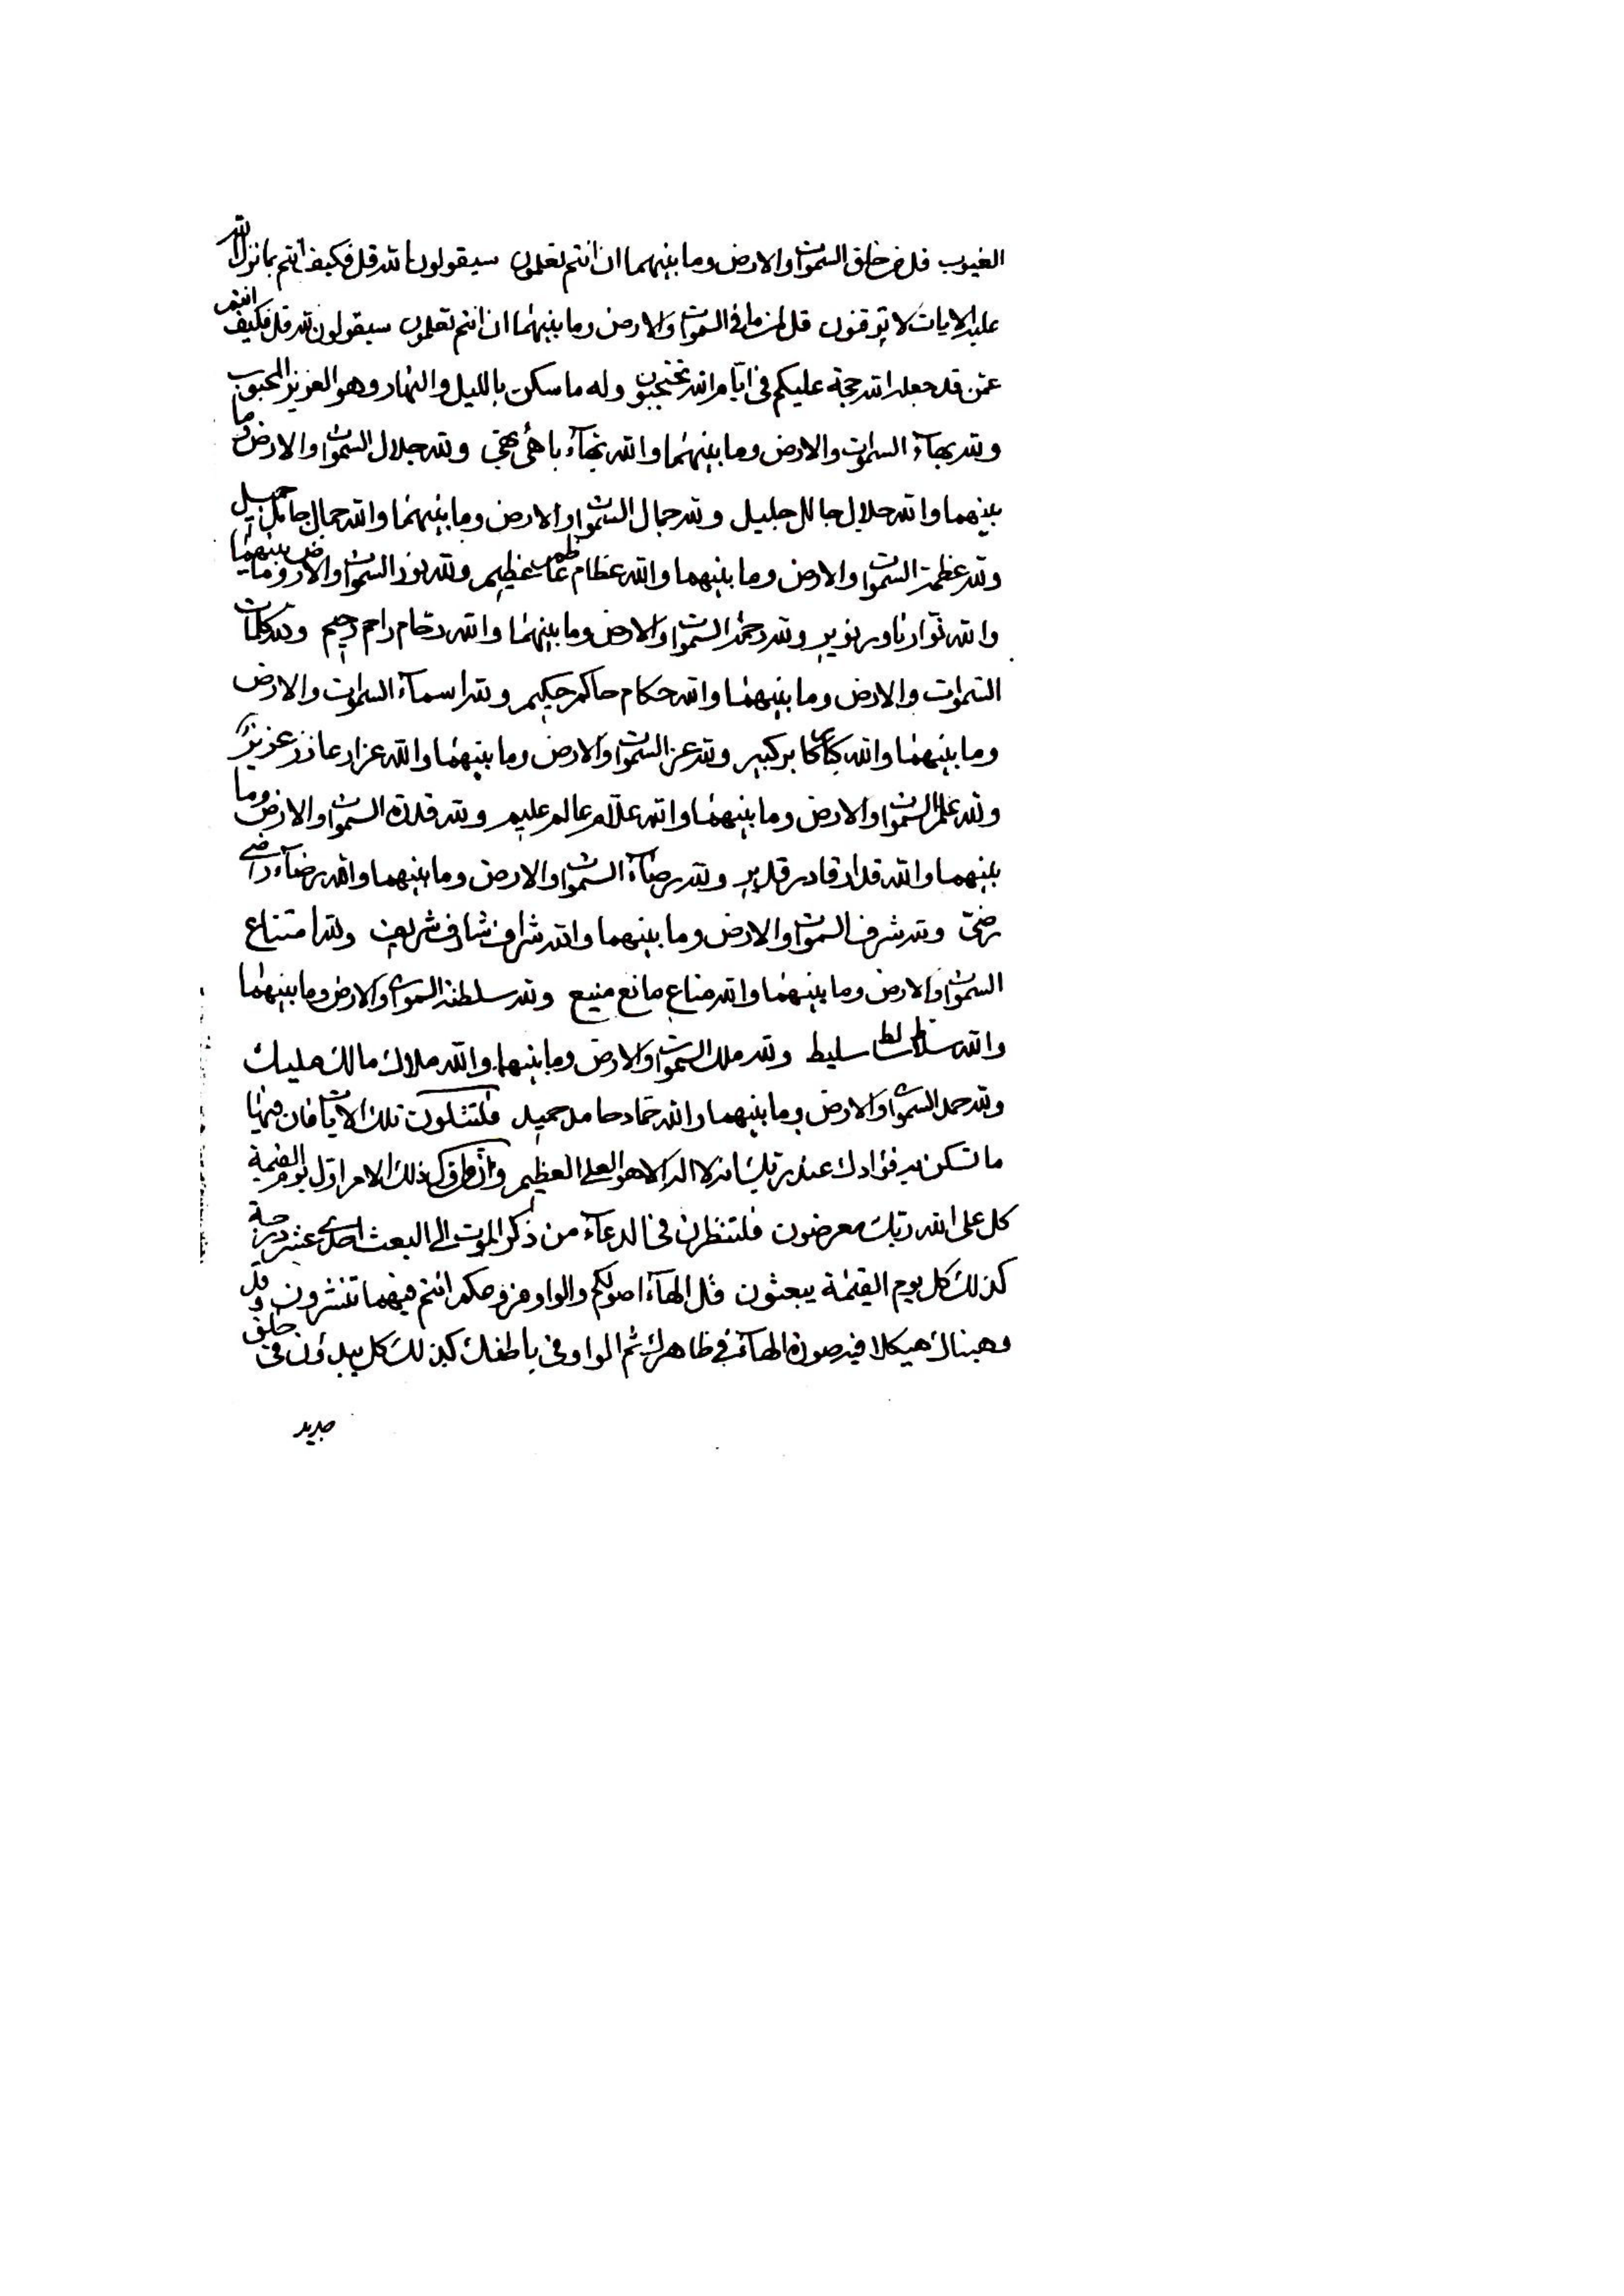 الغيوب قل من خلق السموات والارض وما بينهما ان انتم تعلمون سيقولون الله قل فكيف انتم بما نزل الله
عليه الايات لا توقنون قل لمن ما في السموات والارض وما بينهما ان انتم تعلمون سيقولون لله قل فكيف انتم
عمن قد جعله الله حجة عليكم في ايام الله تحتجبون وله ما سكن بالليل والنهار وهو العزيز المحبوب
ولله بهآء السموات والارض وما بينهما والله بهآء باهي بهي ولله جلال السموات والارض وما
بينهما والله جلال جالل جليل ولله جمال السموات والارض وما بينهما والله جمال جامل جميل
ولله عظمة السموات والارض وما بينهما والله عظام عاظم عظيم ولله نور السموات والارض وما بينهما
والله نوار ناور نوير ولله رحمة السموات والارض وما بينهما والله رحام راحم رحيم ولله كلمات
السموات والارض وما بينهما والله حكام حاكم حكيم ولله اسمآء السموات والارض
وما بينهما والله كبار كابر كبير ولله عز السموات والارض وما بينهما والله عزاز عازز عزيز
ولله علم السموات والارض وما بينهما والله علام عالم عليم ولله قدرة السموات والارض وما
بينهما والله قدار قادر قدير ولله رضآء السموات والارض وما بينهما والله رضآء راضي
رضي ولله شرف السموات والارض وما بينهما والله شراف شارف شريف ولله امتناع
السموات والارض وما بينهما والله مناع مانع منيع ولله سلطنة السموات والارض وما بينهما
والله سلاط سالط سليط ولله ملك السموات والارض وما بينهما والله ملاك مالك مليك
ولله حمد السموات والارض وما بينهما والله حماد حامد حميد فلتتلون تلك الايات فان فيها
ما تسكن به فؤادك عند ربك انه لا اله الا هو العلي العظيم ذلك الامر اول يوم القيمة
كل على الله ربك معرضون فلتنظرن في الدعآء من ذكر الموت الى البعث احدى عشر درجة
كذلك كل يوم القيمة يبعثون قل الهآء اصولكم والواو فروعكم انتم فيهما تنشرون قل
وهبناك هيكلا فيه صورة الهآء في ظاهرك ثم الواو في باطنك كذلك كل يبدؤن في خلق
جديد